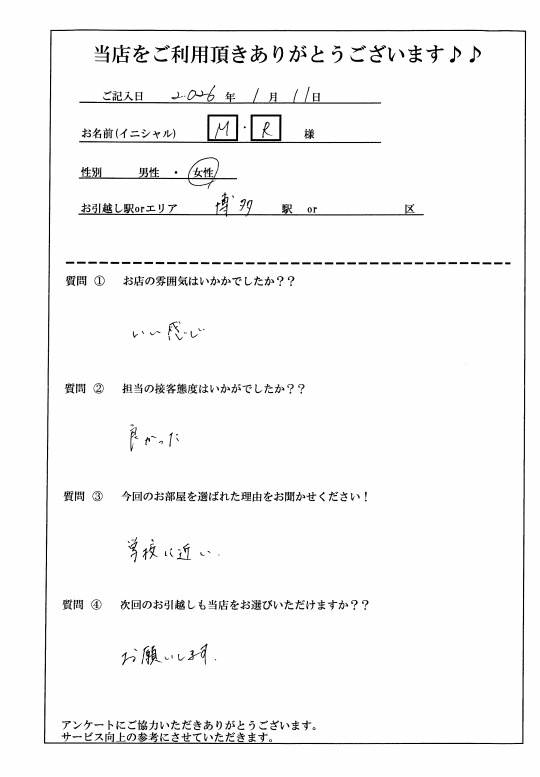 当店をご利用頂きありがとうございます♪♪
ご記入日 2026 年 1 月 11 日
お名前(イニシャル) M・R 様
性別 男性 ・ 女性
お引越し駅orエリア 博多 駅 or 区
質問 ① お店の雰囲気はいかかでしたか？？
いい感じ
質問 ② 担当の接客態度はいかがでしたか？？
良かった
質問 ③ 今回のお部屋を選ばれた理由をお聞かせください！
学校に近い.
質問 ④ 次回のお引越しも当店をお選びいただけますか？？
お願いします.
アンケートにご協力いただきありがとうございます。
サービス向上の参考にさせていただきます。